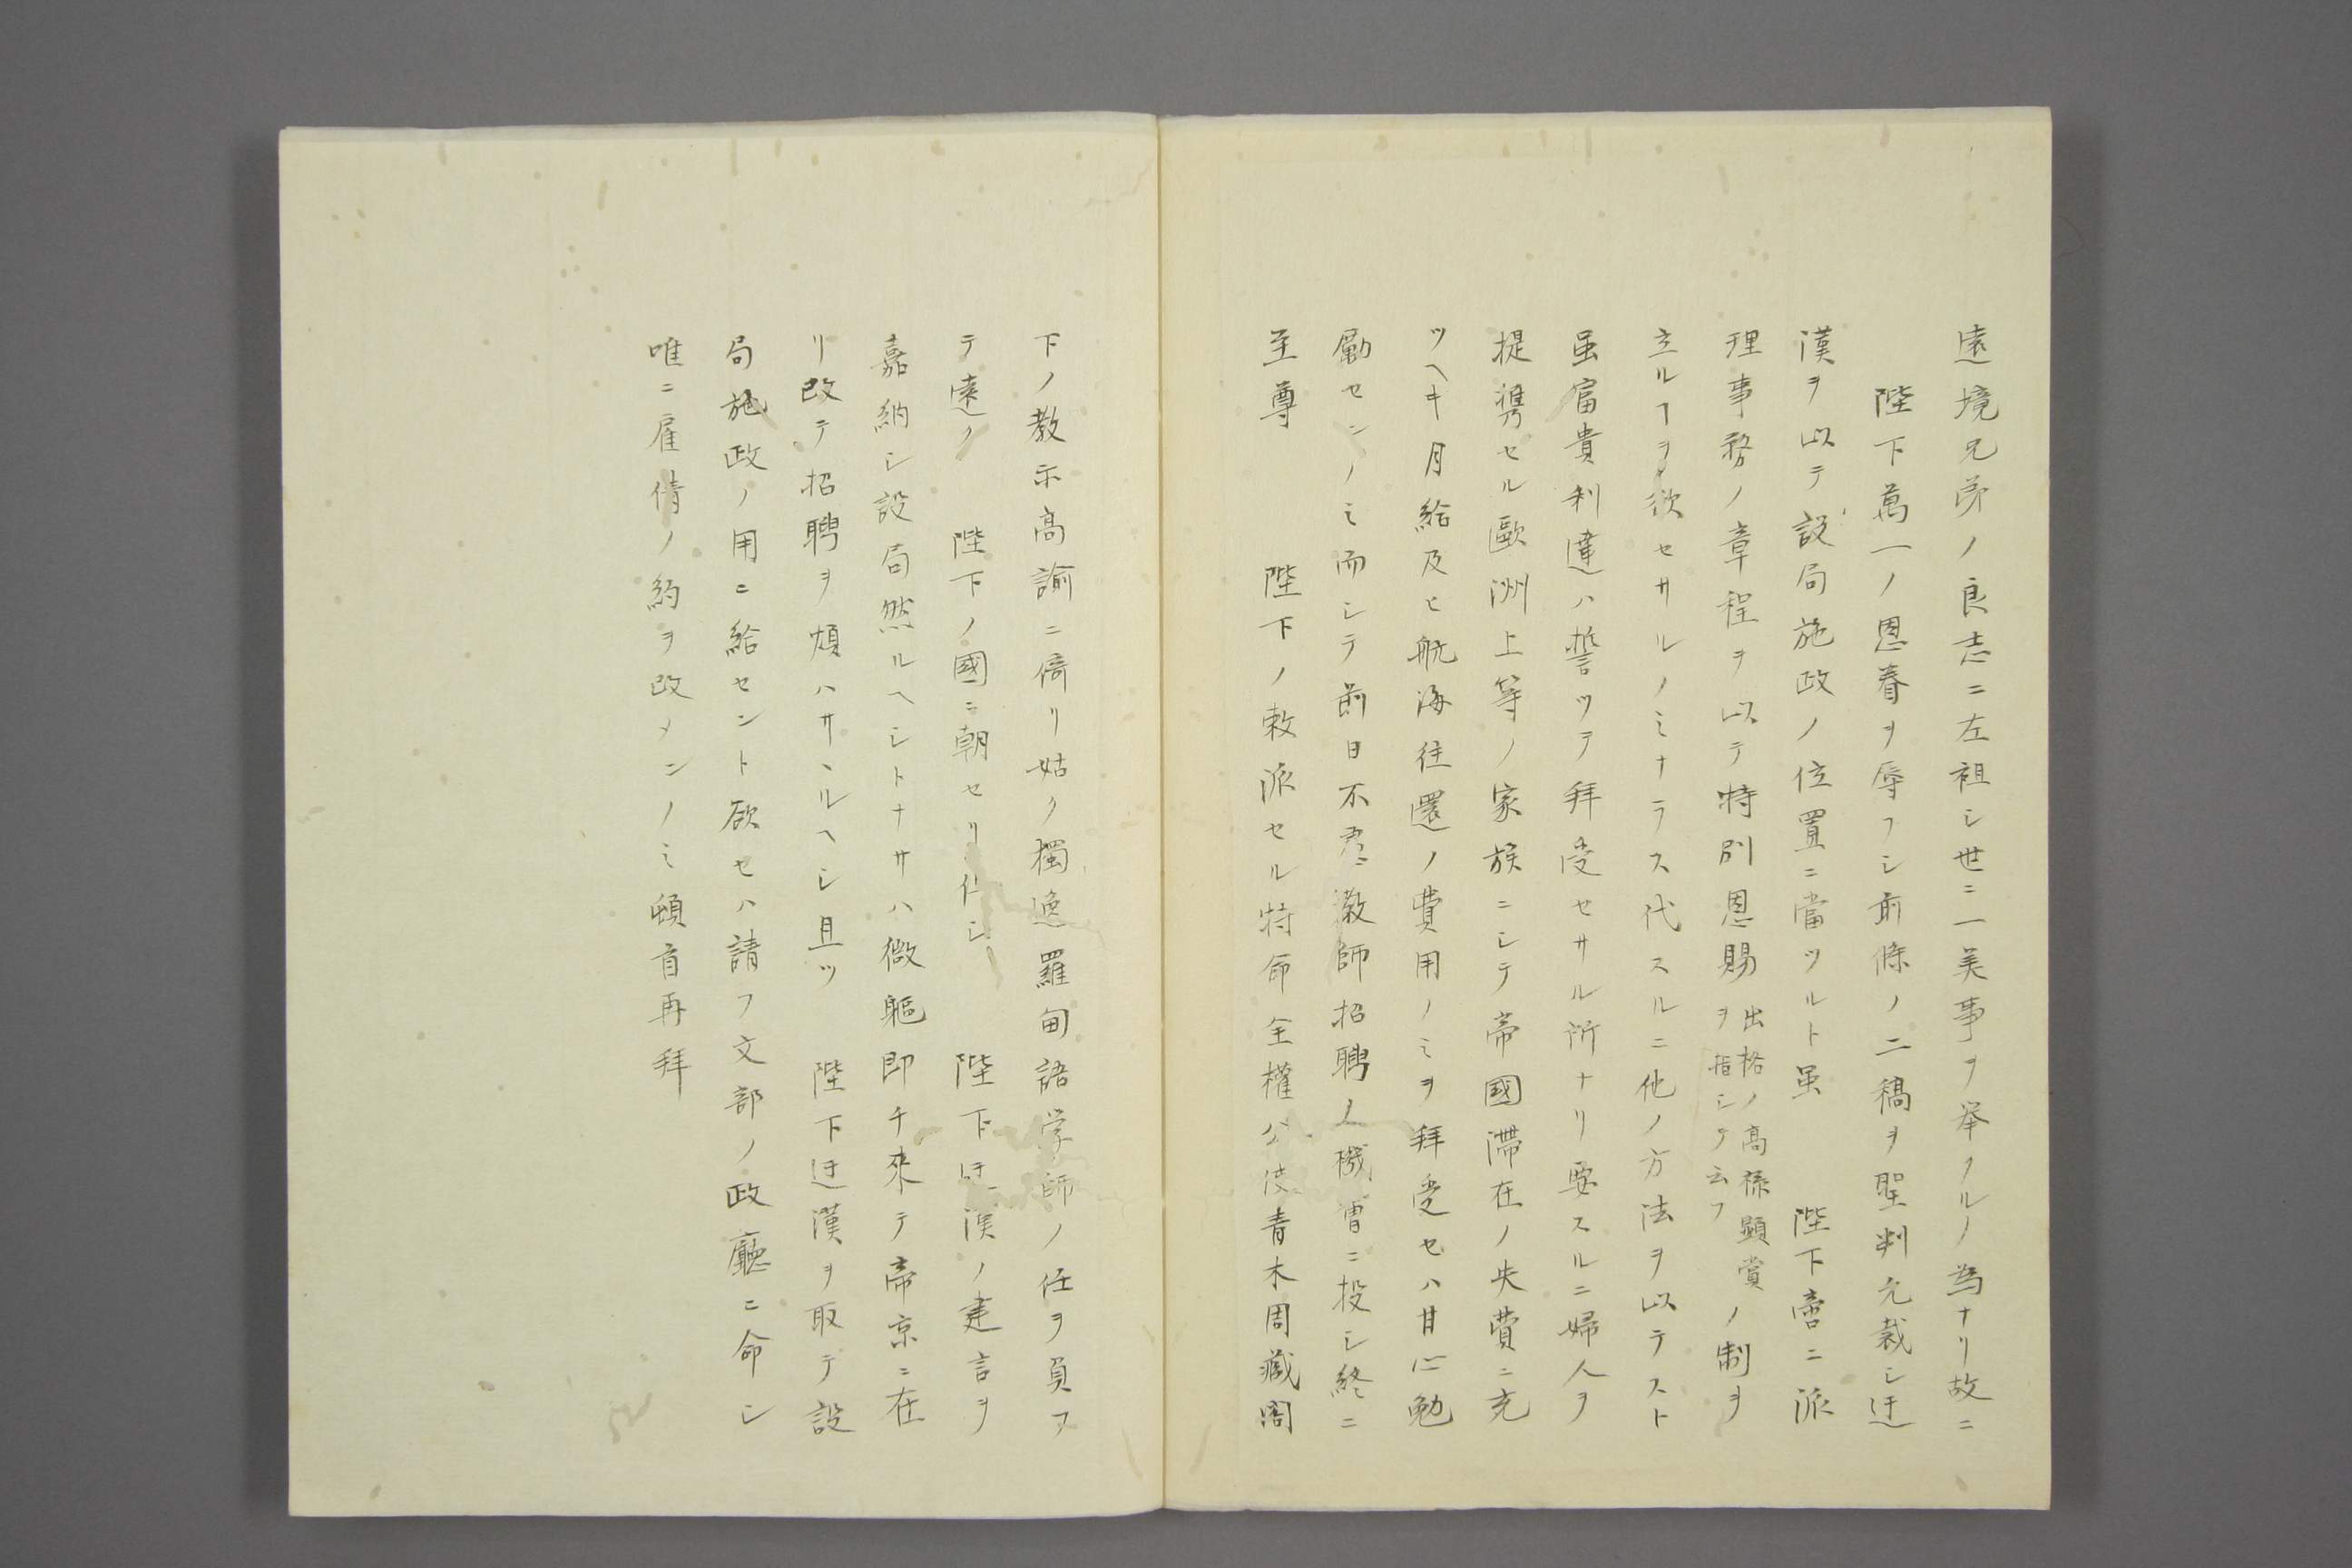 遠境兄弟ノ良志ニ左袒シ世ニ一美事ヲ举クルノ為ナリ故ニ
陛下萬一ノ恩眷ヲ辱フシ前條ノ二稿ヲ聖判允裁シ迂
漢ヲ以テ設局施政ノ位置ニ當ツルト虽　陛下啻ニ派
理事務ノ章程ヲ以テ特別恩賜出格ノ高祿顕賞ヲ指シテ云フノ制ヲ
立ルヿヲ欲セサルノミナラス代スルニ他ノ方法ヲ以テスト
虽富貴利達ハ誓ツテ拜受セサル所ナリ要スルニ婦人ヲ
提携セル歐洲上等ノ家族ニシテ帝國滞在ノ失費ニ充
ツヘキ月給及ヒ航海往還ノ費用ノミヲ拜受セハ甘心勉
勵センノミ而シテ前日不肖教師招聘ノ機會ニ投シ終ニ
至尊　陛下ノ敕派セル特命全權公使青木周藏閣
下ノ教示高諭ニ倚リ姑ク獨逸羅甸語学師ノ任ヲ負フ
テ遠ク　陛下ノ國ニ朝セリ　陛下迂漢ノ建言ヲ
嘉納シ設局然ルヘシトナサハ微軀即チ來テ帝京ニ在
リ改テ招聘ヲ煩ハサヽルヘシ且ツ　陛下迂漢ヲ取テ設
局施政ノ用ニ給セント欲セハ請フ文部ノ政廳ニ命シ
唯ニ雇倩ノ約ヲ改メンノミ頓首再拜